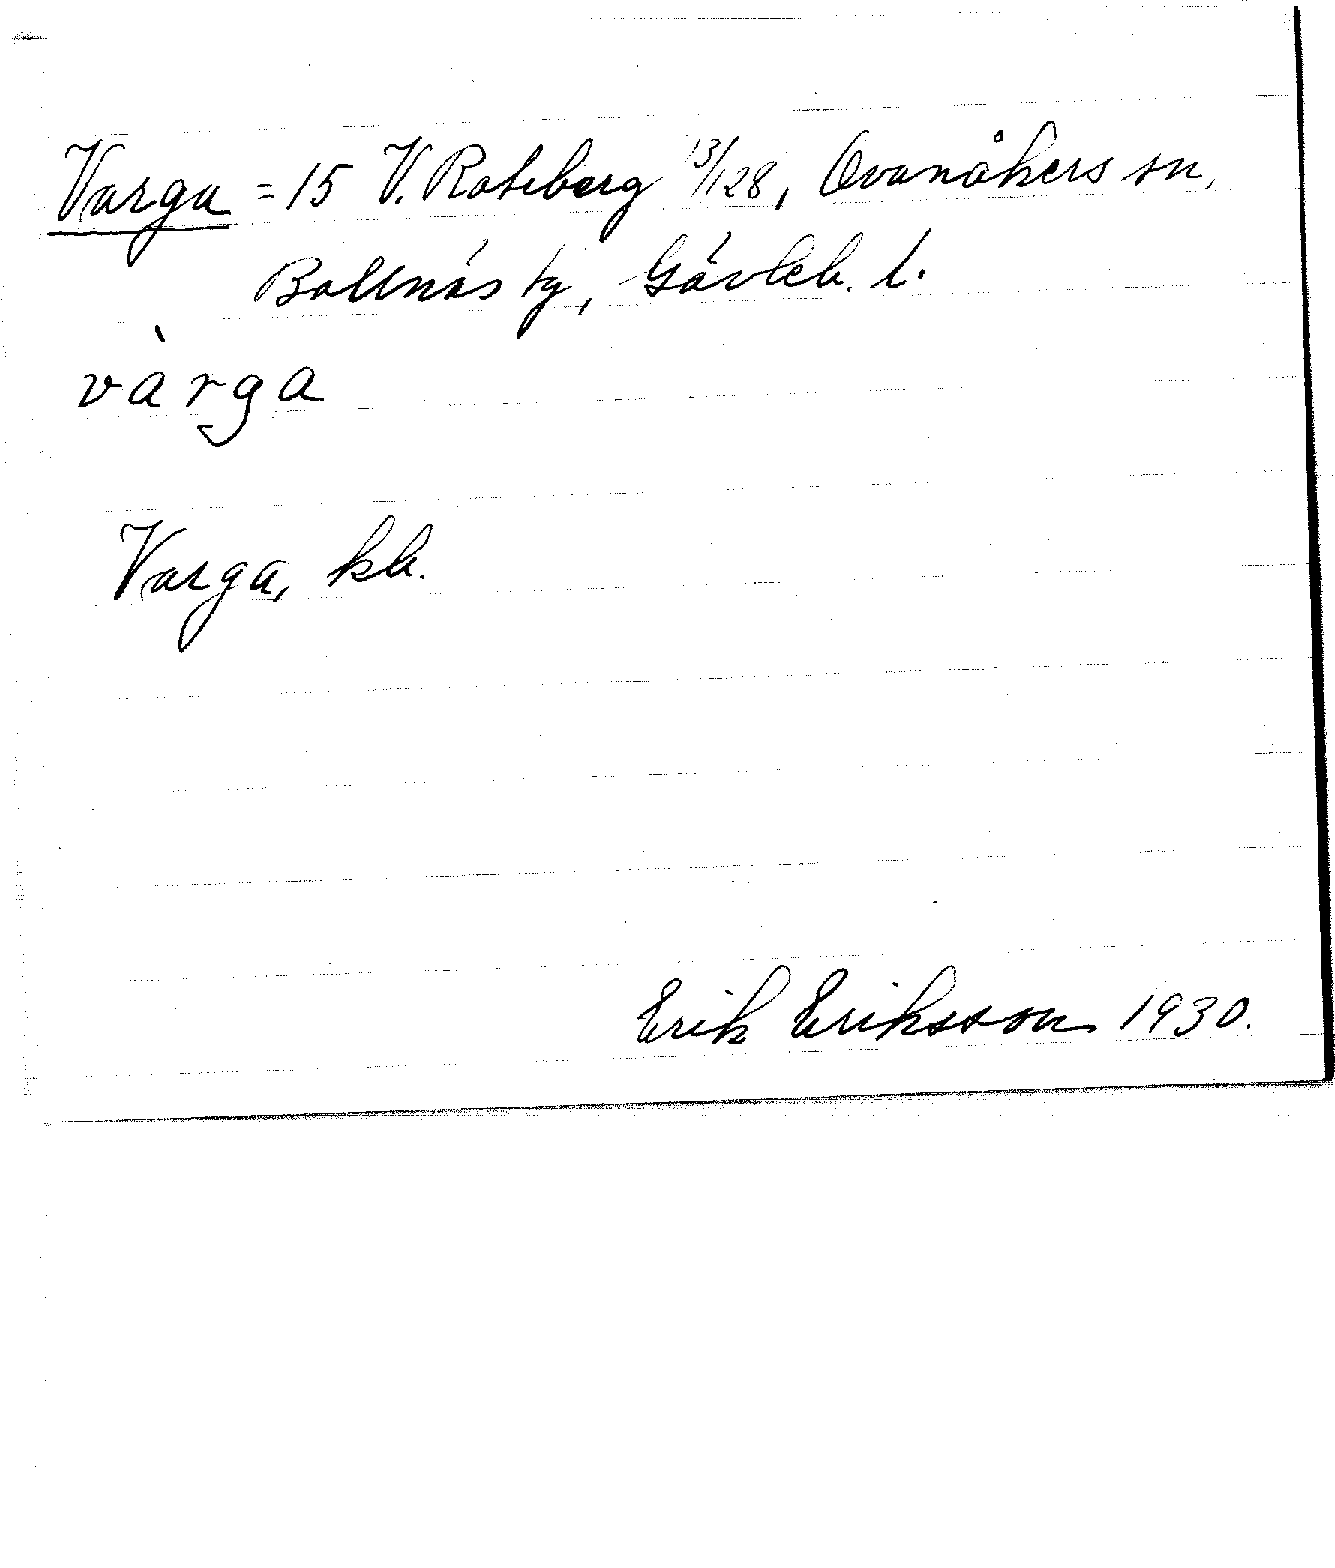 Varga = 15 V. Roteberg 13/128, Ovanåkers sn,
Bollnäs tg, Gävleb. l.
vàrga
Varga, kb.
Erik Eriksson 1930.